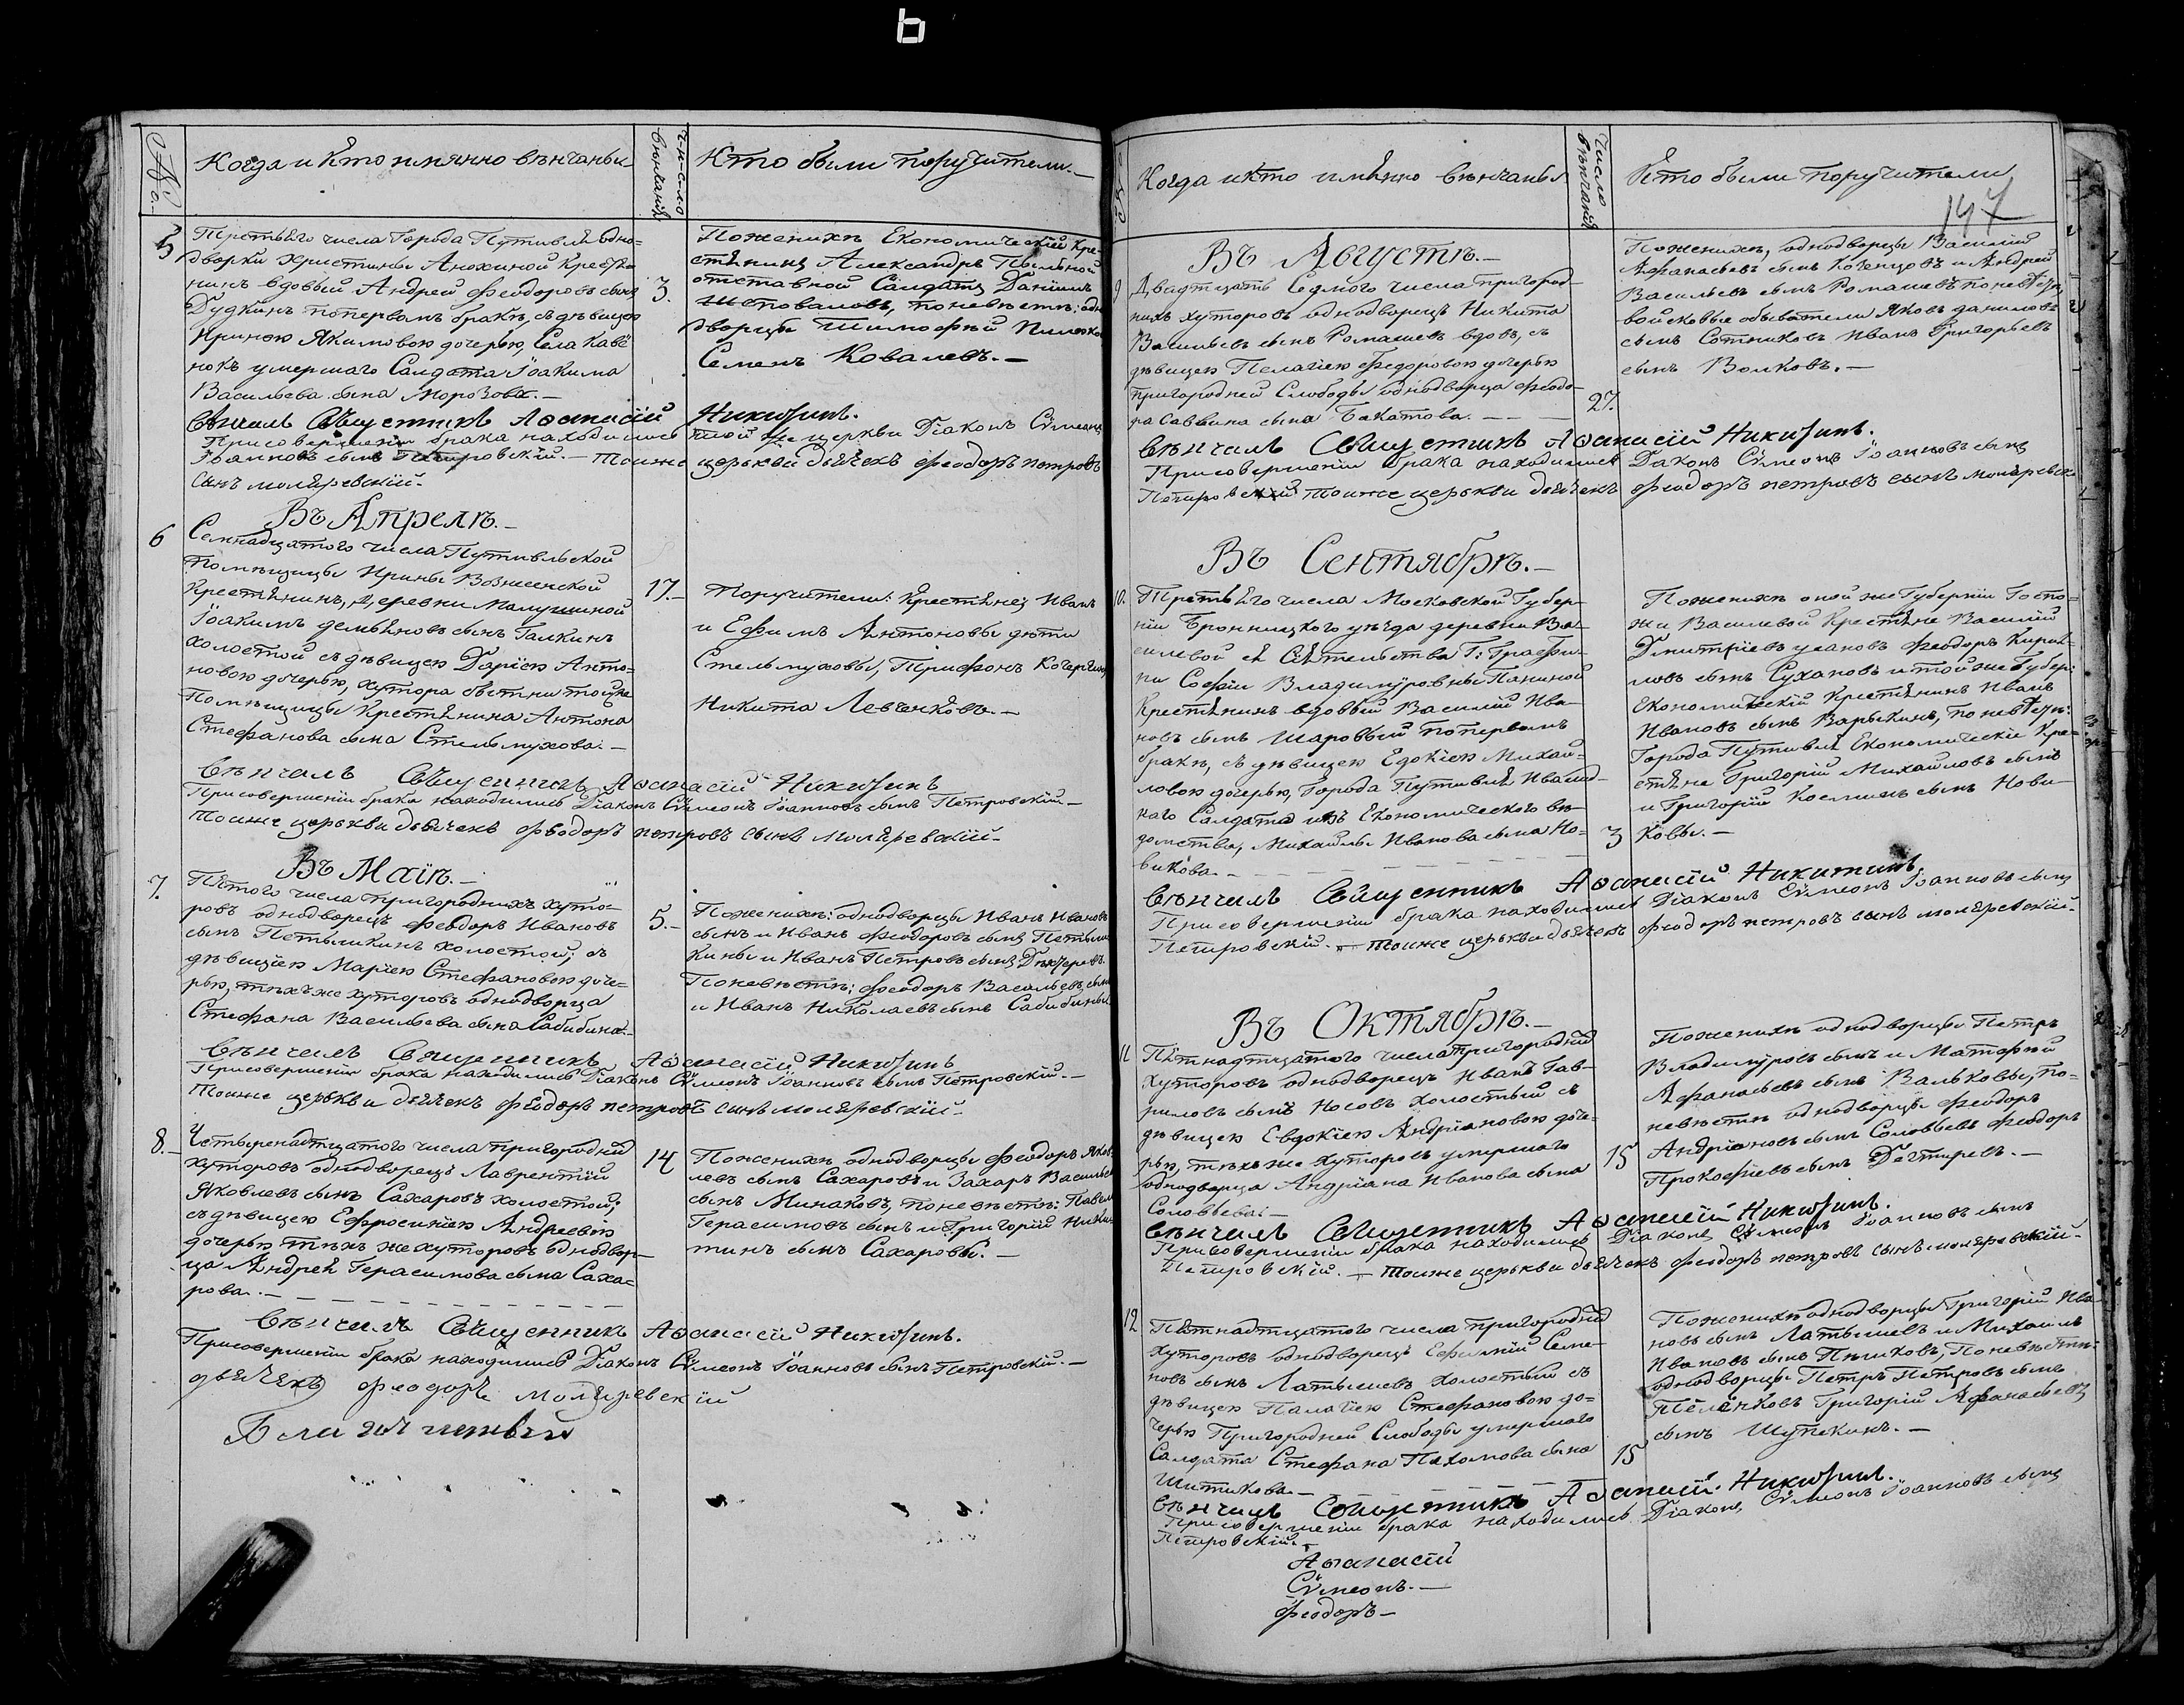 Ь
№.
Когда и кто имянно вѣнчаны
число вѣнчанія
Кто были поручители.—
5
Третьяго числа Города Путивля одно-
дворки Христины Анохиной Крестья
нинъ вдовый Андрей Феодоровъ сынъ
Дудкинъ поперво́мъ бракѣ, съ дѣвицею
Ириною Якимовою дочерью, Села
умершаго Салдата Іоакима
Васильева сына Морозова.—
3.
Поженихѣ Економическій кре-
стянинъ Александръ
отставной Салдатъ Даніилъ
Шаповаловъ, поневѣстѣ: одно
дворцы Тимофѣй
Семенъ Ковалевъ.—
Вѣнчалъ Священникъ Аѳанасій Никитинъ.
Присовершеніи брака находились тойже церкви Діаконъ Сѵмеонъ
Іоанновъ сынъ Петровскій.— тоиже церькви дьячекъ Феодоръ петровъ
сынъ моляревскій.
Въ Апрелѣ.—
6
Семнадцатого числа Путивльской
Помѣщицы Ирины Вознесенской
Крестянинъ, деревни Малушиной
Іоакимъ демьяновъ сынъ Галкинъ
холостой съ дѣвицею Даріею Анто-
новою дочерью, хутора тойже
Помѣщицы Крестянина Антона
Стефанова сына Стельмухова.—
17.—
Поручители: Крестянец Иванъ
и Ефимъ Антоновы дѣти
Стельмуховы, Трифонъ
Никита Левченковъ.—
Вѣнчалъ Священникъ Аѳанасій Никитинъ
Присовершеніи брака находились Діаконъ Сѵмеонъ Іоанновъ сынъ Петровскій.—
Тоиже церькви дьячекъ Феодоръ петровъ сынъ моляревскій.
Въ Маіѣ.—
7.
Пятого числа Пригородныхъ хуто-
ровъ однодворецъ Феодоръ Ивановъ
сынъ Петыкинъ холостой; съ
дѣвицею Маріею Стефановою доче-
рью, тѣхъже хуторовъ однодворца
Стефана Васильева сына Сабибина.—
5.—
Поженихѣ: однодворцы Иванъ Ивановъ
сынъ и Иванъ Феодоровъ сынъ
кины и Иванъ Петровъ сынъ
Поневѣстѣ: Феодоръ Васильевъ сынъ
и Иванъ Николаевъ сынъ Сабибины
Вѣнчалъ Священникъ Аѳанасій Никитинъ
Присовершеніи брака находились Діаконъ Сѵмеонъ Іоанновъ сынъ Петровскій.—
Тоиже церькви дьячекъ Феодоръ петровъ сынъ моляревскій.
8.—
Четыренадтцатого числа пригородний
хуторовъ однодворецъ Лаврентій
Яковлевъ сынъ Сахаровъ холостой;
съ дѣвицею Ефросиніею Андреевою
дочерью тѣхъ же хуторовъ однодвор-
ца Андрея Герасимова сына Саха=
рова.—
14
Поженихѣ однодворцы Феодоръ Яков-
левъ сынъ Сахаровъ и Захаръ Васильевъ
сынъ Минаковъ, поневѣстѣ: Павелъ
Герасимовъ сынъ и Григорій Ники-
тинъ сынъ Сахаровы.—
Вѣнчалъ Священникъ Аѳанасій Никитинъ.
Присовершеніи брака находились Діаконъ Сѵмеонъ Іоанновъ сынъ Петровскій.—
дьячекъ Феодоръ Моляревскій
Когда и кто имянно вѣнчаны
Число вѣнчанія
Кто были поручители
147
Въ Августѣ.—
9
Двадтцать Седмого числа пригород-
нихъ хуторовъ однодворецъ Никита
Васильевъ сынъ Ромашевъ вдовъ, съ
дѣвицею Пелагіею Федоровою дочерью
пригородней Слободы однодворца Феодо-
ра Саввина сына Бакатова.—
27.
Поженихѣ, однодворцы Василій
Афанасьевъ сынъ и Андрей
Васильевъ сынъ Ромашевъ поневѣстѣ,
войсковые обыватели Яковъ даниловъ
сынъ Сотниковъ Иванъ Григорьевъ
сынъ Волковъ.—
Вѣнчалъ Священникъ Аѳанасій Никитинъ.
Присовершеніи брака находились Діаконъ Сѵмеонъ Іоанновъ сынъ
Петровскій тоиже церькви дьячекъ Феодоръ петровъ сынъ моляревскі
Въ Сентябрѣ.—
10.
Третьяго числа Московской Губер-
ніи Бронницкого уѣзда деревни Ва-
силевой ея Сіятельства Г: Графи-
ни Софіи Владимуровны Паниной
Крестянинъ вдовый Василій Ива-
новъ сынъ Шаровый поперво́мъ
бракѣ, съ дѣвицею Едокіею Михай-
ловою дочерью, Города Путивля Инвалид-
наго Салдата изъ Економического вѣ-
домства, Михайлы Иванова сына Но-
викова.—
3
Поженихѣ оной же Губерніи Госпо-
жи Василевой Крестяне Василій
Дмитріевъ улановъ Феодоръ Кирил-
ловъ сынъ Сухановъ и тойже Губер:
Економическій Крестянинъ Иванъ
Ивановъ сынъ Варыкинъ, поневѣстѣ:
Города Путивля Економическіе Кре-
стяне Григорій Михайловъ сынъ
и Григорій Косминъ сынъ Нови
ковы.—
Вѣнчалъ Священникъ Аѳанасій Никитинъ
Присовершеніи брака находились Діаконъ Сѵмеонъ Іоанновъ сынъ
Петровскій.— тоиже церькви дьячекъ Феодоръ петровъ сынъ моляревскій.
Въ Октябрѣ.—
11
Пятнадтцатого числа пригородний
хуторовъ однодворецъ Иванъ Гав-
риловъ сынъ Носовъ холостый съ
дѣвицею Евдокіею Андріановою доче-
рью, тѣхъже хуторовъ умершаго
однодворца Андріана Иванова сына
Соловьева.—
15
Поженихѣ однодворцы Петръ
Владимуровъ сынъ и Матфѣй
Афанасьевъ сынъ Вальковы, по-
невѣстѣ однодворцы Феодоръ
Андріановъ сынъ Соловьевъ Феодоръ
Прокофіевъ сынъ Дегтяревъ.—
Вѣнчалъ Священникъ Аѳанасій Никитинъ.
Присовершеніи брака находились Діаконъ Сѵмеонъ Іоанновъ сынъ
Петровскій.— тоиже церькви дьячекъ Феодоръ петровъ сынъ моляревскій.
12
Пятнадтцатого числа пригородний
хуторовъ однодворецъ Ефимій Семе-
новъ сынъ Латышевъ холостый съ
дѣвицею Палагіею Стефановою до-
черью Пригородней Слободы умершаго
Салдата Стефана Пахомова сына
Шитикова.—
15
Поженихѣ однодворцы Григорій Ива-
новъ сынъ Латышевъ и Михаилъ
Ивановъ сынъ Пѣшковъ, Поневѣстѣ:
однодворцы Петръ Петровъ сынъ
Теленковъ Григорій Афанасьевъ
сынъ Шупекинъ.—
Вѣнчалъ Священникъ Аѳанасій Никитинъ.
Присовершеніи брака находились Діаконъ Сѵмеонъ Іоанновъ сынъ
Петровскій.
Аѳанасій
Сѵмеонъ.—
Феодоръ—